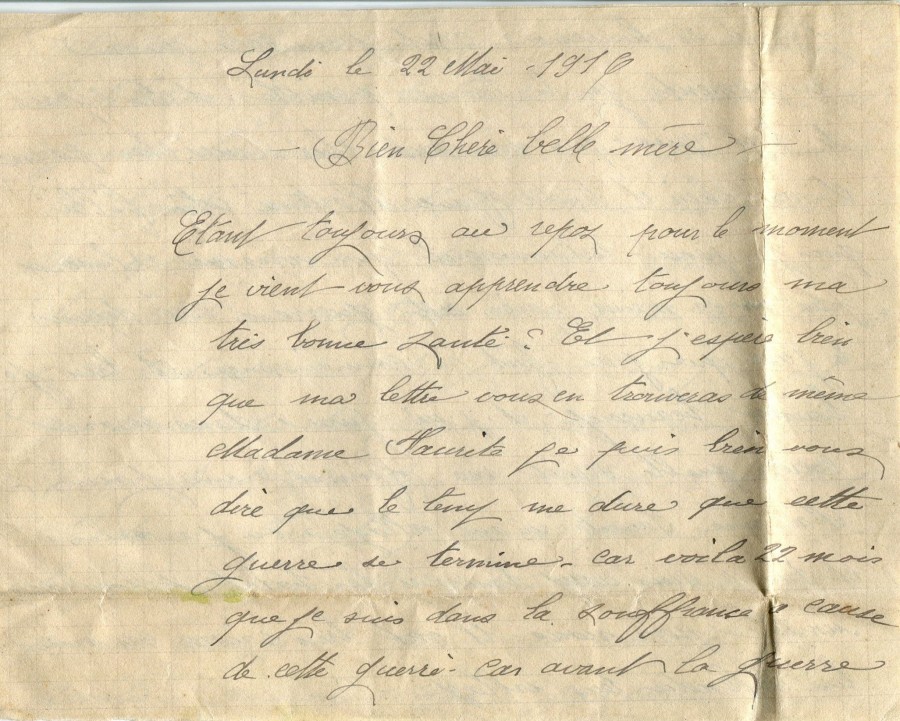 Lundi le 22 Mai - 1916
- Bien Chère belle mère -
Etant toujours au repos pour le moment
je vient vous apprendre toujours ma
très bonne santé : Et j'espère bien
que ma lettre vous en trouveras de même
Madame je puis bien vous
dire que le temp me dure que cette
guerre se termine - car voila 22 mois
que je suis dans la souffranse a cause
de cette guerre - car avant la guerre